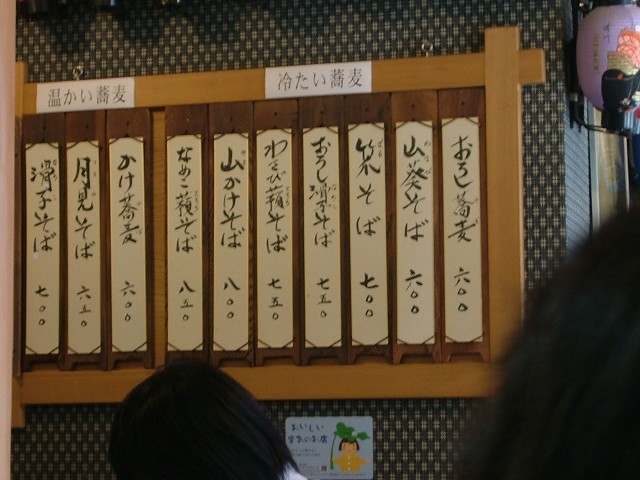 冷たい蕎麦
おろし蕎麦 六〇〇
山葵そば 六〇〇
笊そば 七〇〇
おろし滑子そば 七五〇
わさび薢そば 七五〇
山かけそば 八〇〇
なめこ薢そば 八五〇
温かい蕎麦
かけ蕎麦 六〇〇
月見そば 六五〇
滑子そば 七〇〇
おいしい
空気のお店